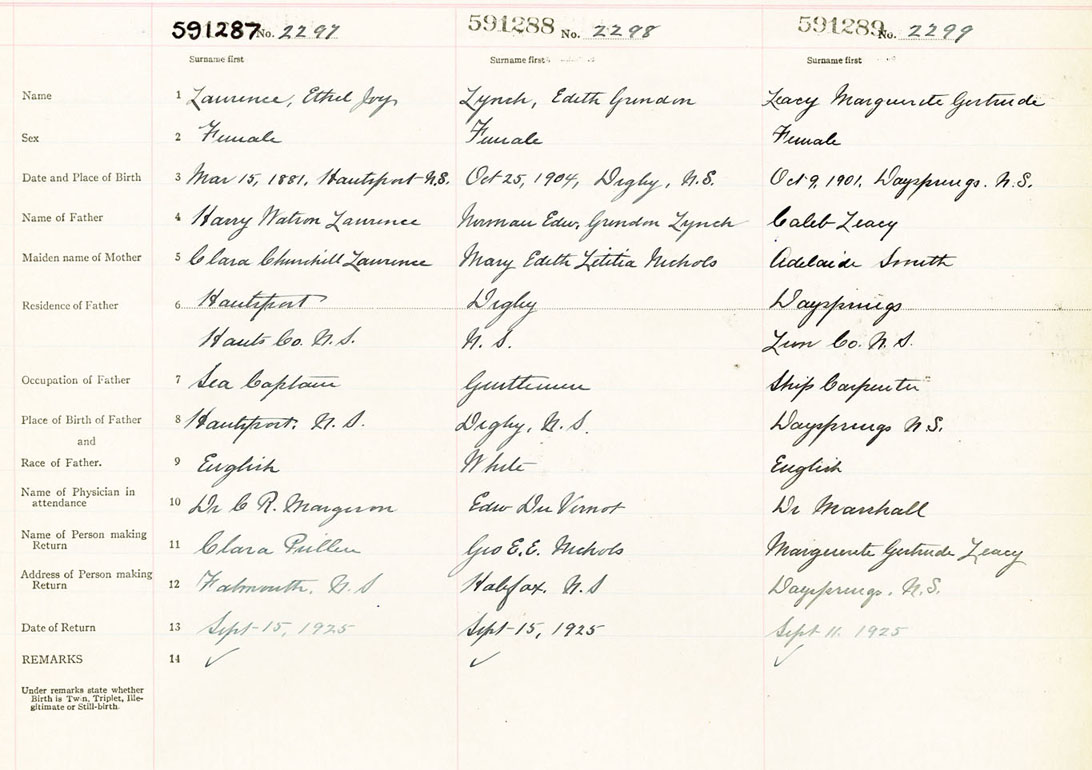 591287 No. 2297 591288 No. 2298 591289 No. 2299
Surname first Surname first Surname first
Name 1 Lawrence, Ethel Joy Lynch, Edith Grendon Leacy Marguerete Gertrude
Sex 2 Female Female Female
Date and Place of Birth 3 Mar 15, 1881, Hantsport N.S. Oct 25, 1904, Digby, N.S. Oct 9, 1901, Daysprings. N.S.
Name of Father 4 Harry Watson Lawrence Norman Edw. Grendon Lynch Caleb Leacy
Maiden name of Mother 5 Clara Churchill Lawrence Mary Edith Letitia Nichols Adelaide Smith
Residence of Father 6 Hantsport Digby Daysprings
Hants Co. N.S. N.S. Lun Co. N.S.
Occupation of Father 7 Sea Captain Gentleman Ship Carpenter
Place of Birth of Father 8 Hantsport, N.S. Digby, N.S. Daysprings N.S.
and
Race of Father. 9 English White English
Name of Physician in
attendance 10 Dr C R. Margeson Edw Du Vernot Dr Marshall
Name of Person making
Return 11 Clara Pullen Geo E.E. Nichols Marguerete Gertrude Leacy
Address of Person making
Return 12 Falmouth, N.S Halifax, N.S Dayspring, N.S.
Date of Return 13 Sept-15, 1925 Sept-15, 1925 Sept 11. 1925
REMARKS 14 ✓ ✓ ✓
Under remarks state whether
Birth is Twin, Triplet, Ille-
gitimate or Still-birth.